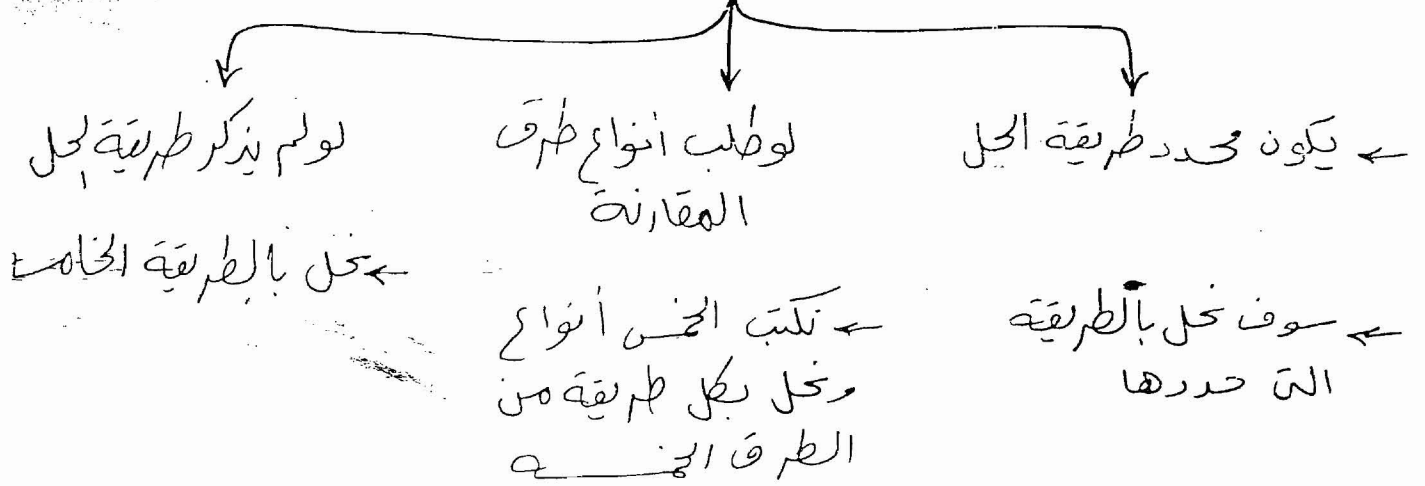 ← يكون محدد طريقة الحل
← سوف نحل بالطريقة
التى حددها
لو طلب أنواع طرق
المقارنة
← نكتب الخمس أنواع
ونحل بكل طريقة من
الطرق الخمسه
لو لم يذكر طريقة الحل
← نحل بالطريقة الخامسة